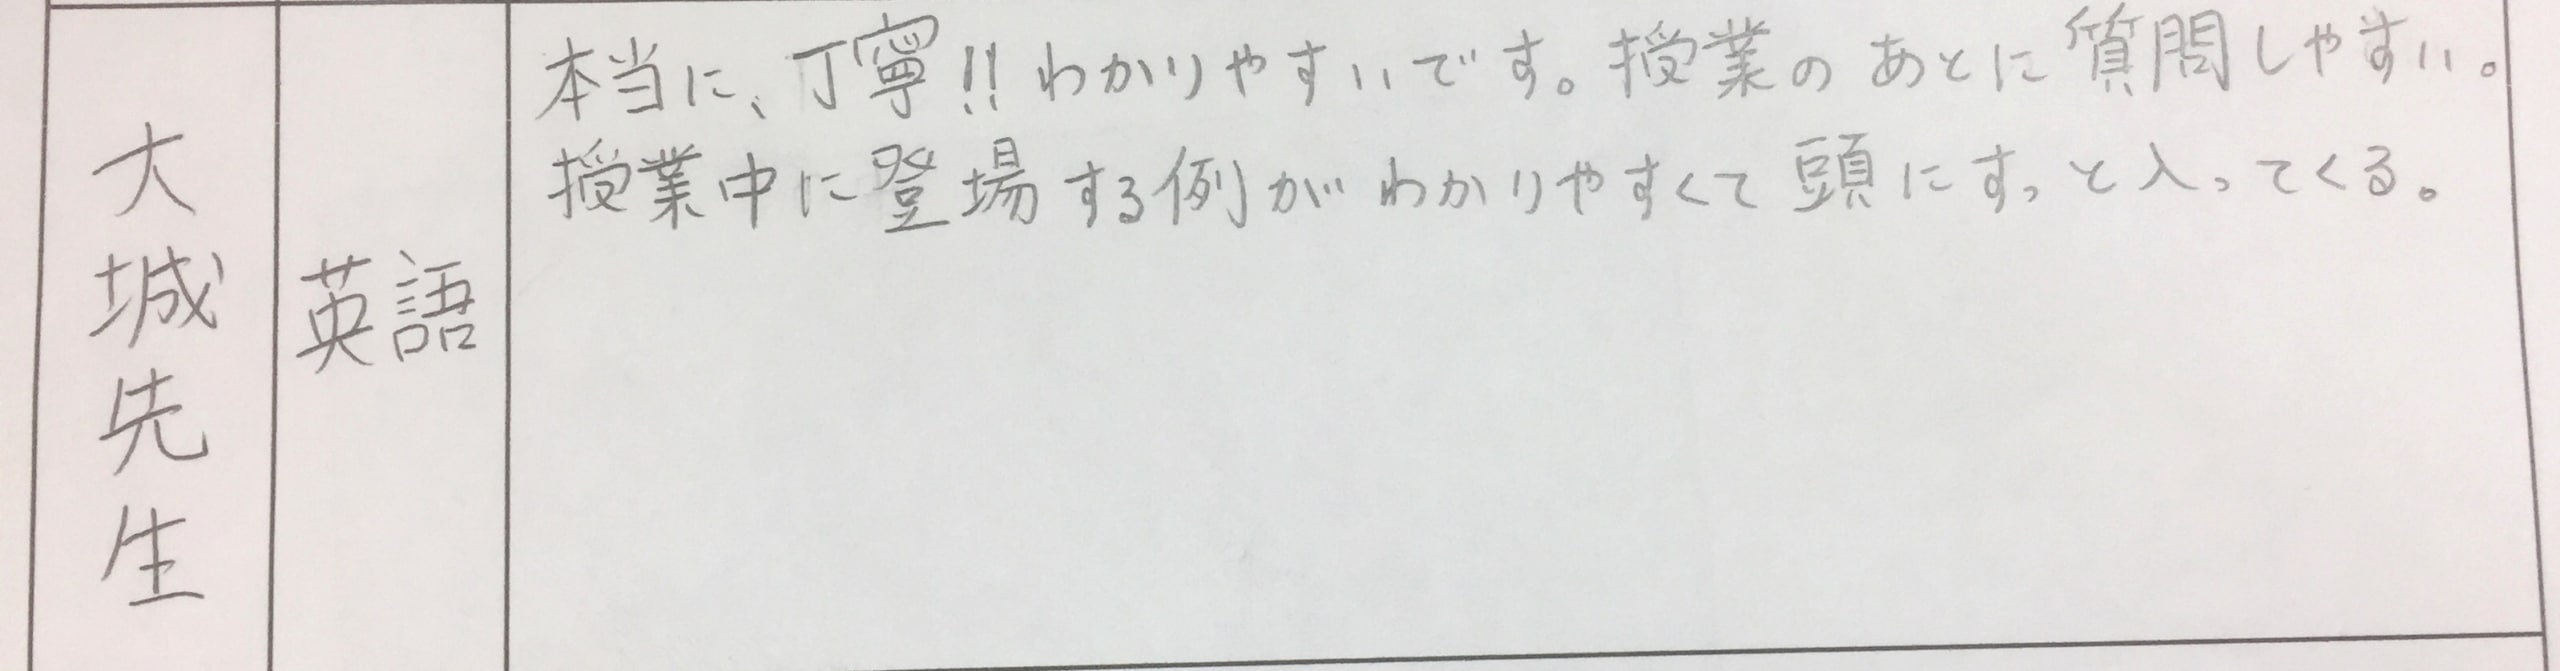 大城先生
英語
本当に、丁寧!!わかりやすいです。授業のあとに質問しやすい。
授業中に登場する例がわかりやすくて頭にすっと入ってくる。